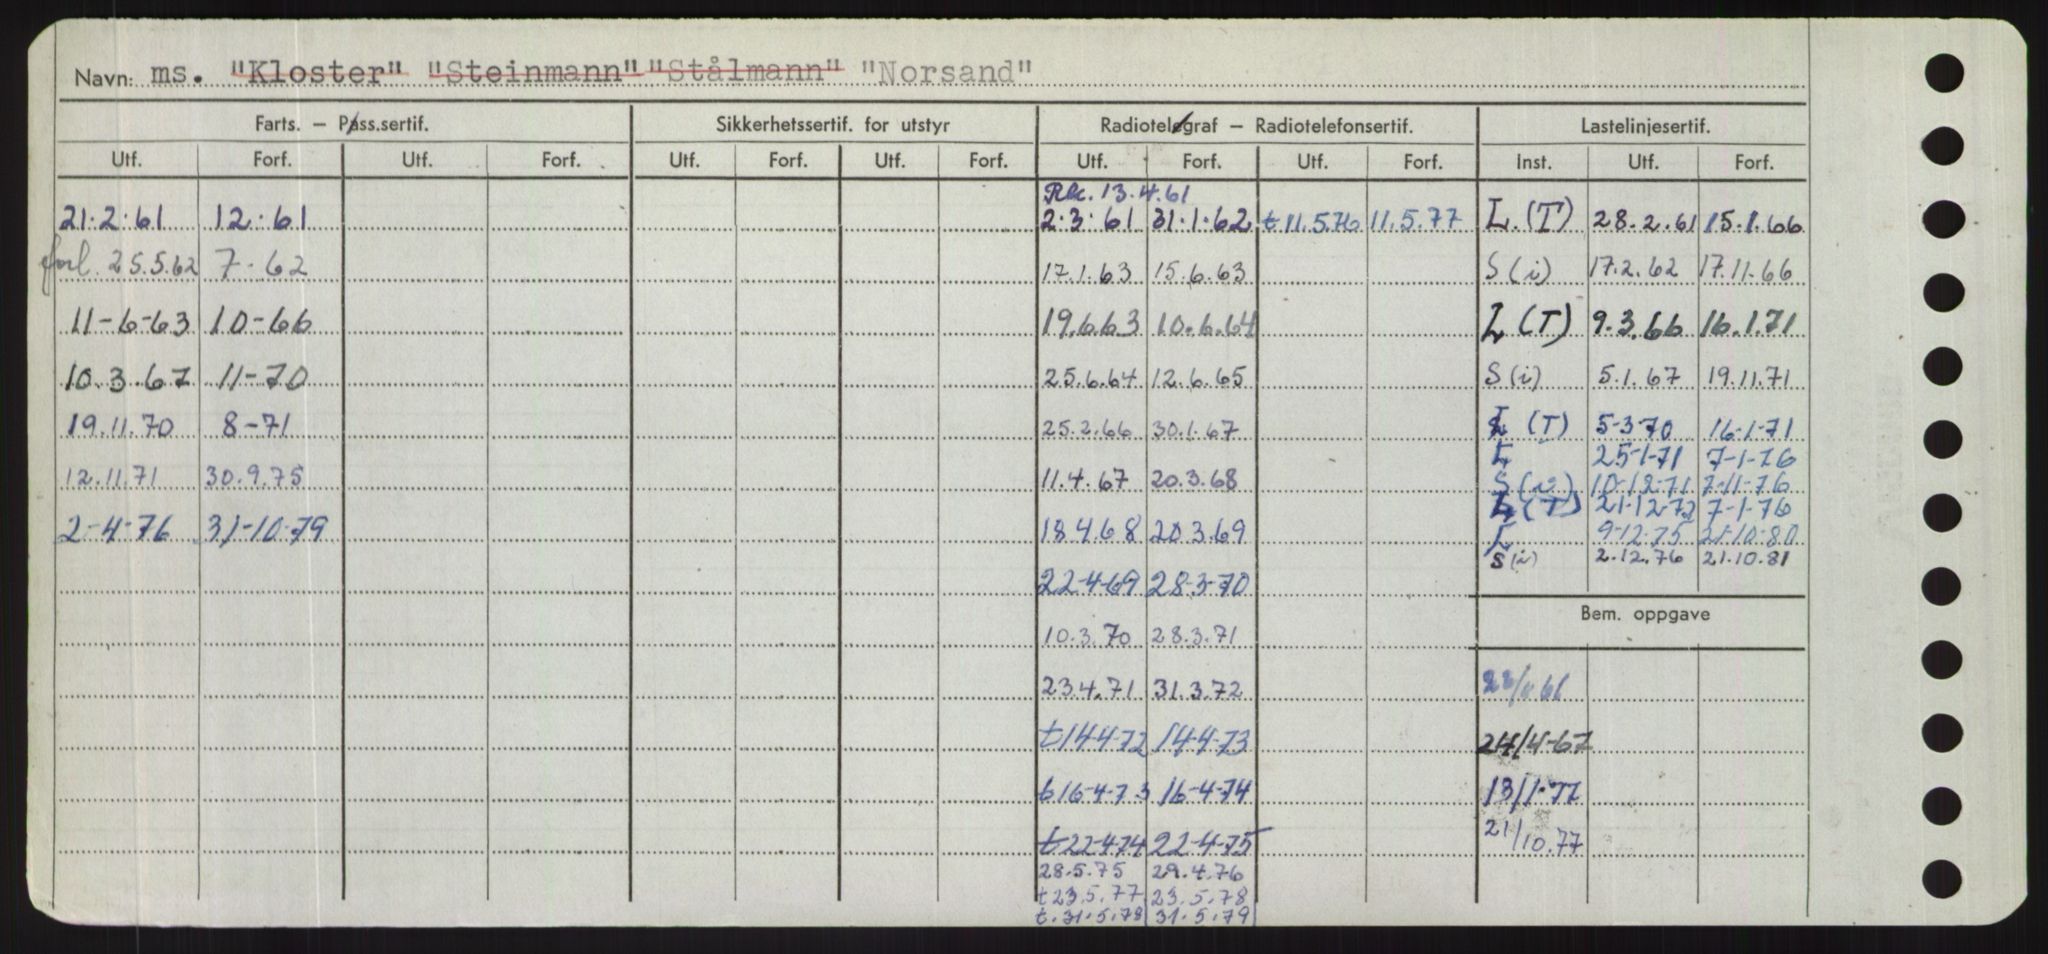 Navn: ms. "Kloster" "Steinmann" "Stålmann" "Norsand"
Farts. – Pass.sertif. Sikkerhetssertif. for utstyr Radiotelegraf – Radiotelefonsertif. Lastelinjesertif.
Utf. Forf. Utf. Forf. Utf. Forf. Utf. Forf. Utf. Forf. Utf. Forf. Inst. Utf. Forf.
13.4.61
21.2.61 12.61 2.3.61 31.1.62 t 11.5.76 11.5.77 L.(T) 28.2.61 15.1.66
forl. 25.5.62 7-62 17.1.63 15.6.63 S(i) 17.2.62 17.11.66
11-6-63 10-66 19.6.63 10.6.64 L(T) 9.3.66 16.1.71
10.3.67 11-70 25.6.64 12.6.65 S(i) 5.1.67 19.11.71
19.11.70 8-71 25.2.66 30.1.67 L (T) 5-3-70 16-1-71
L 25-1-71 7-1-76
12.11.71 30.9.75 11.4.67 20.3.68 S(i) 10-12-71 7-11-76
L(T) 21-12-72 7-1-76
2-4-76 31-10-79 18.4.68 20.3.69 L 9-12-75 21-10-80
S(i) 2.12.76 21.10.81
22-4-69 28-3-70
Bem. oppgave
10.3.70 28.3.71
23.4.71 31.3.72
t 14-4-72 14-4-73 24/4-67
16-4-73 16-4-74 13/1-77
t 22-4-74 22-4-75 21/10.77
28.5.75 29.4.76
t 23.5.77 23.5.78
t. 31.5.78 31.5.79